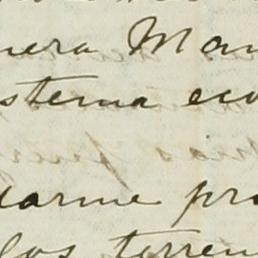 nera Man
stema eco
darme pro
los terren